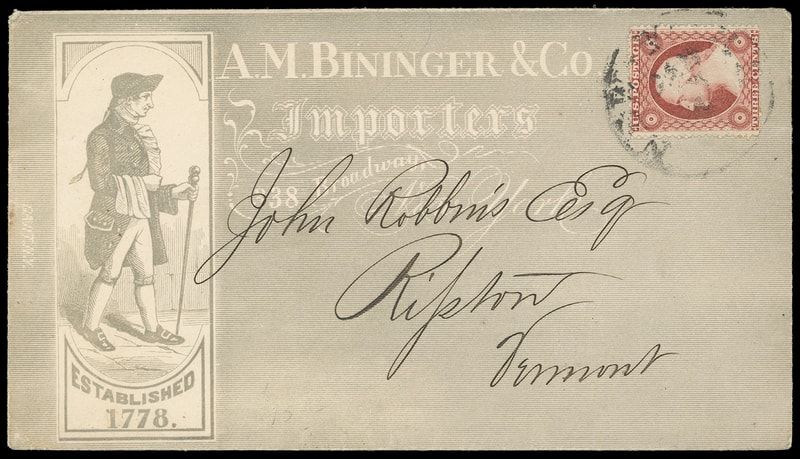 A.M. BININGER & CO
Importers
338 Broadway
New York
John Robbins Esq
Ripton
Vermont
ESTABLISHED
1778.
U.S. POSTAGE
THREE CENTS